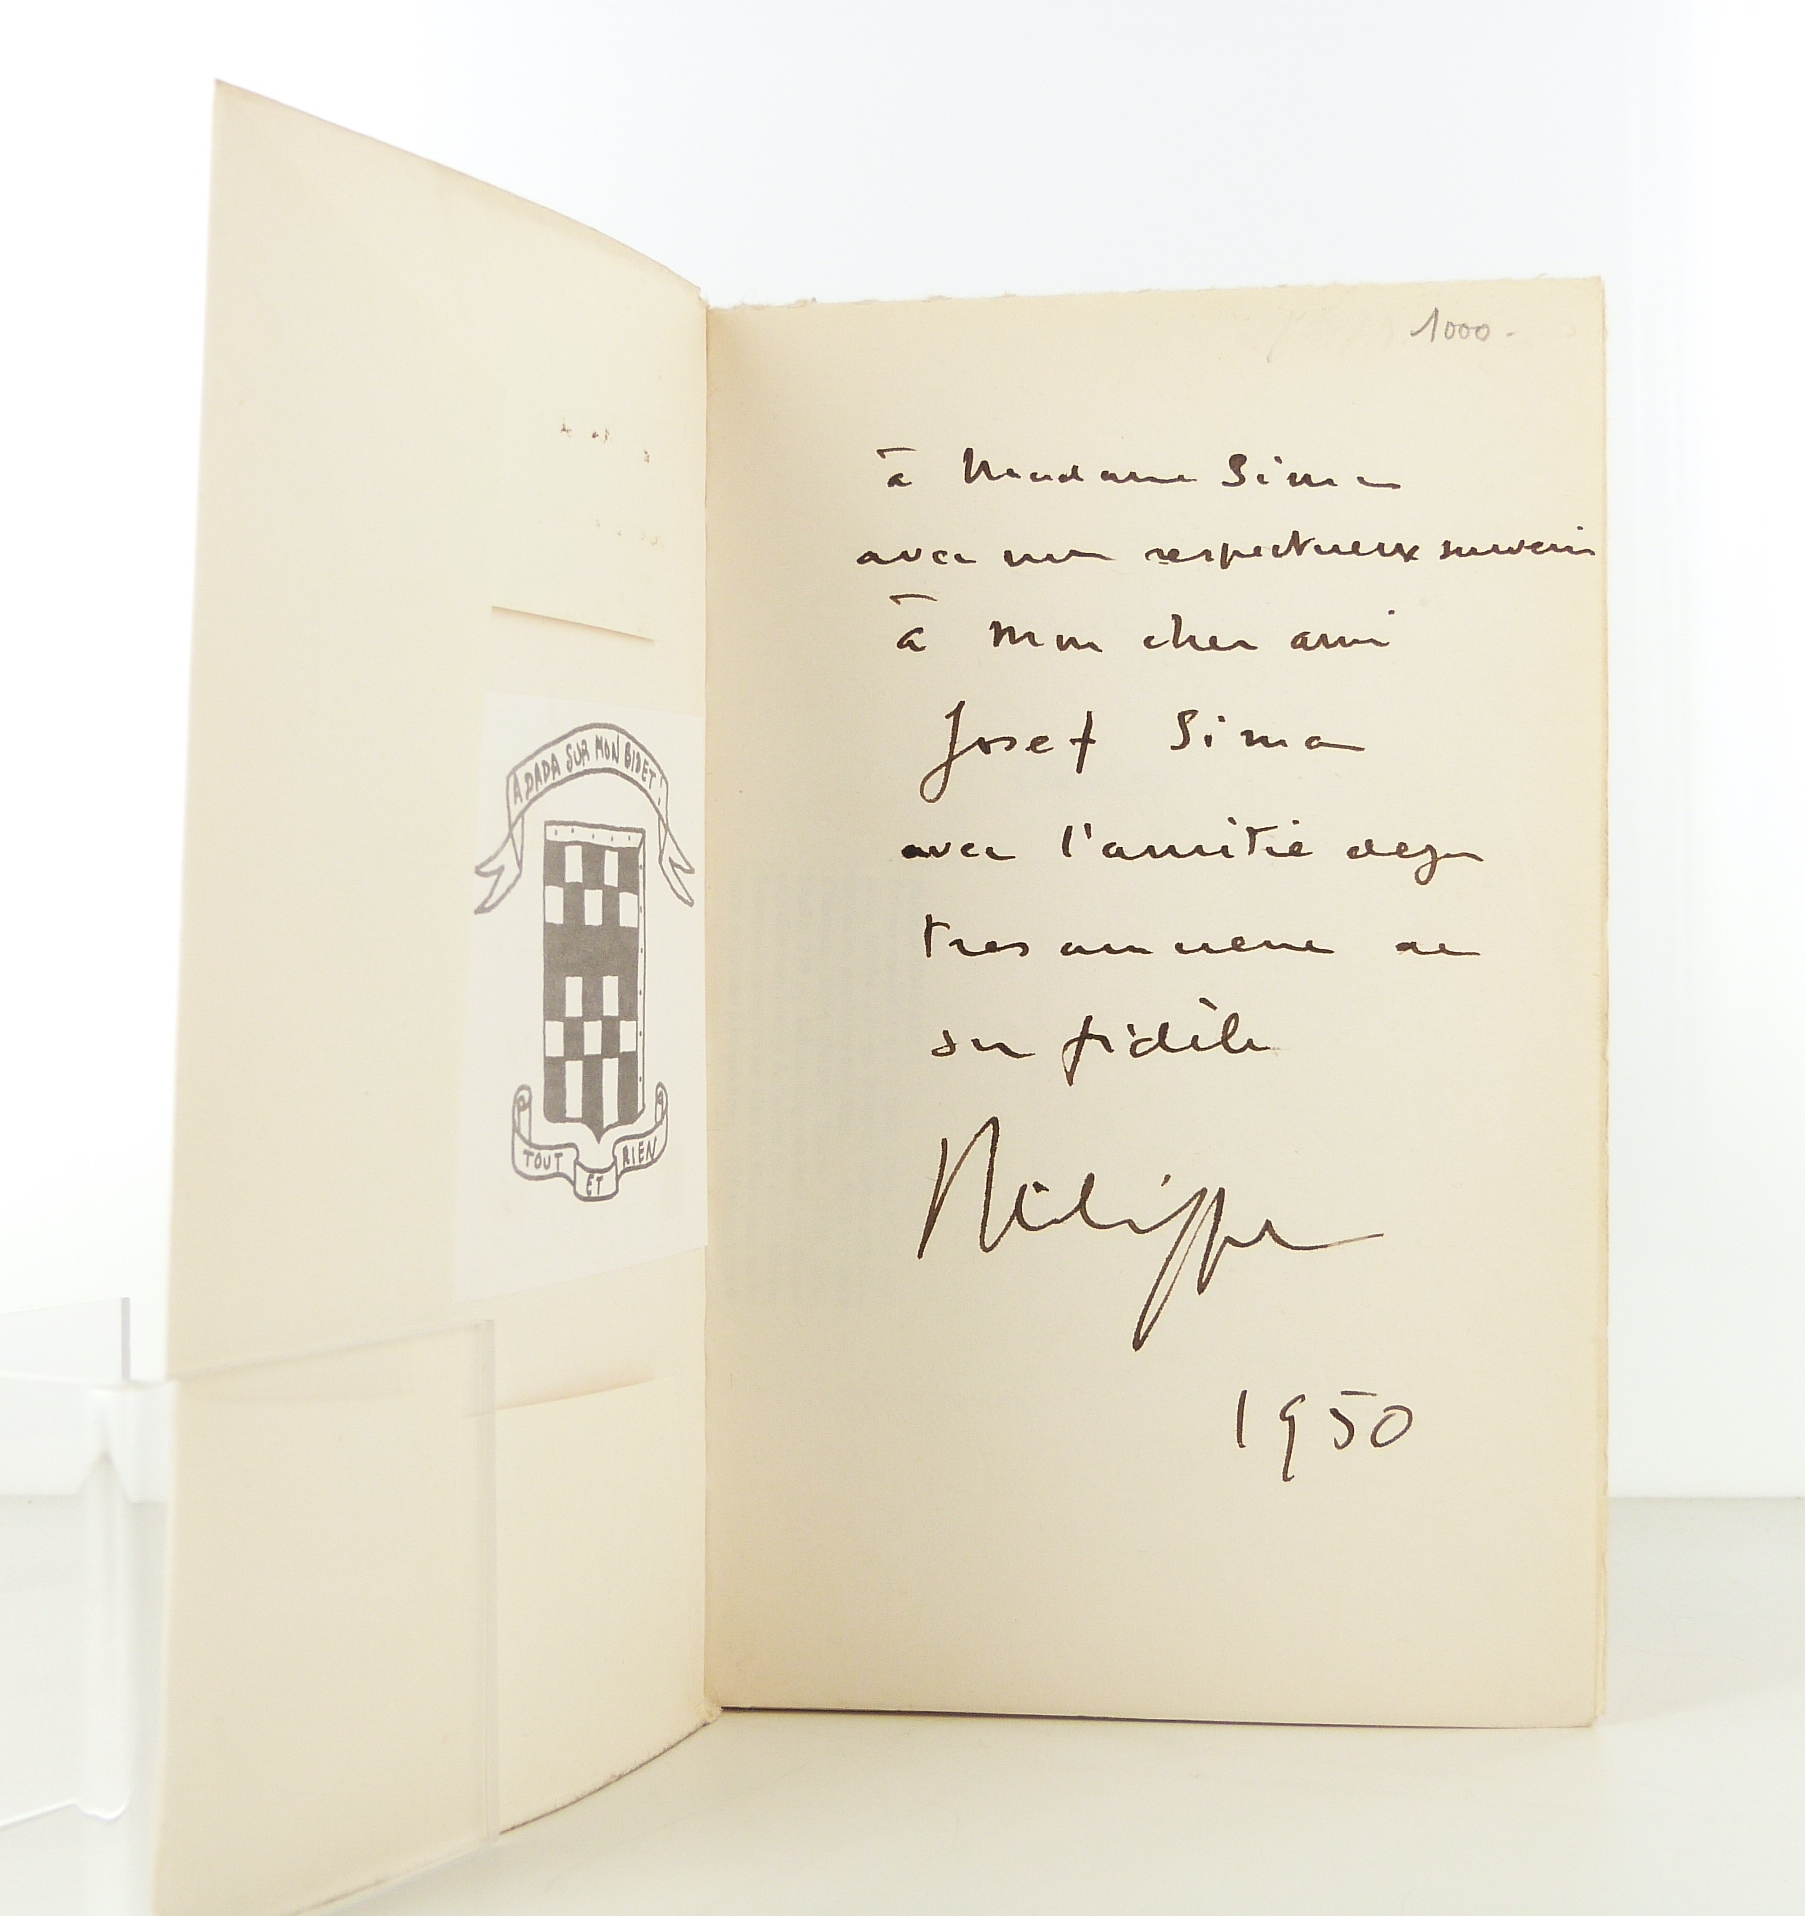 A DADA SUR MON BIDET!
TOUT ET RIEN
1000-
à Madame Sima
avec mon respectueux souvenir
à mon cher ami
Josef Sima
avec l'amitié deja
tres ancienne de
son fidèle
Philippe
1950